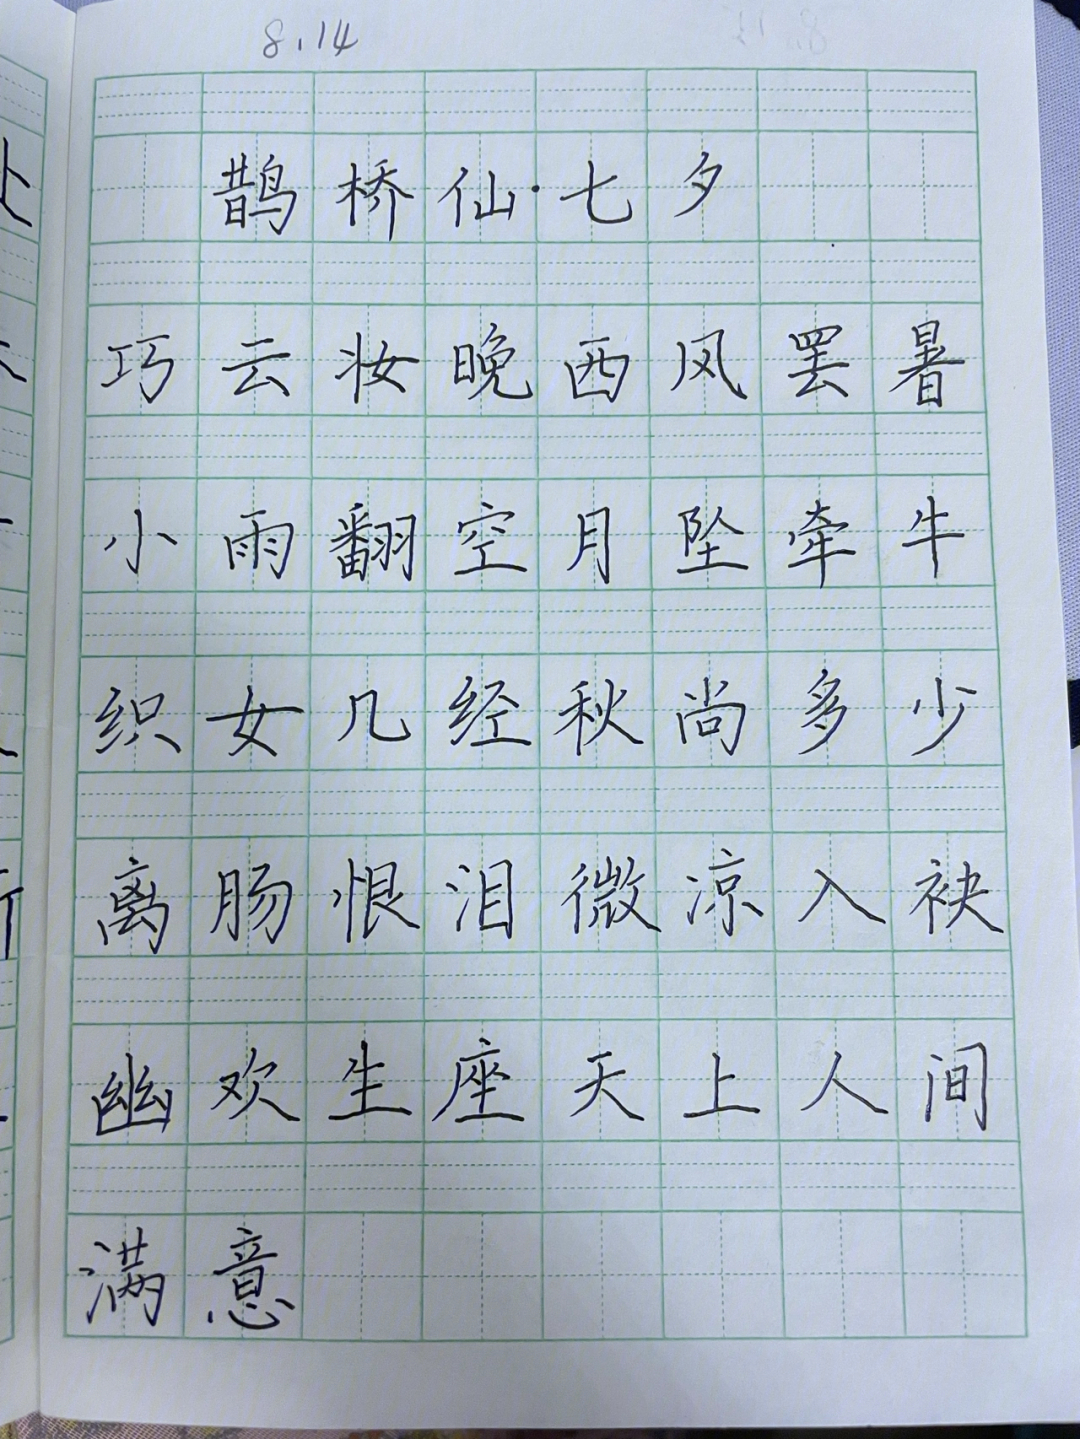 8.14
鹊桥仙·七夕
巧云妆晚西风罢暑
小雨翻空月坠牵牛
织女几经秋尚多少
离肠恨泪微凉入袂
幽欢生座天上人间
满意